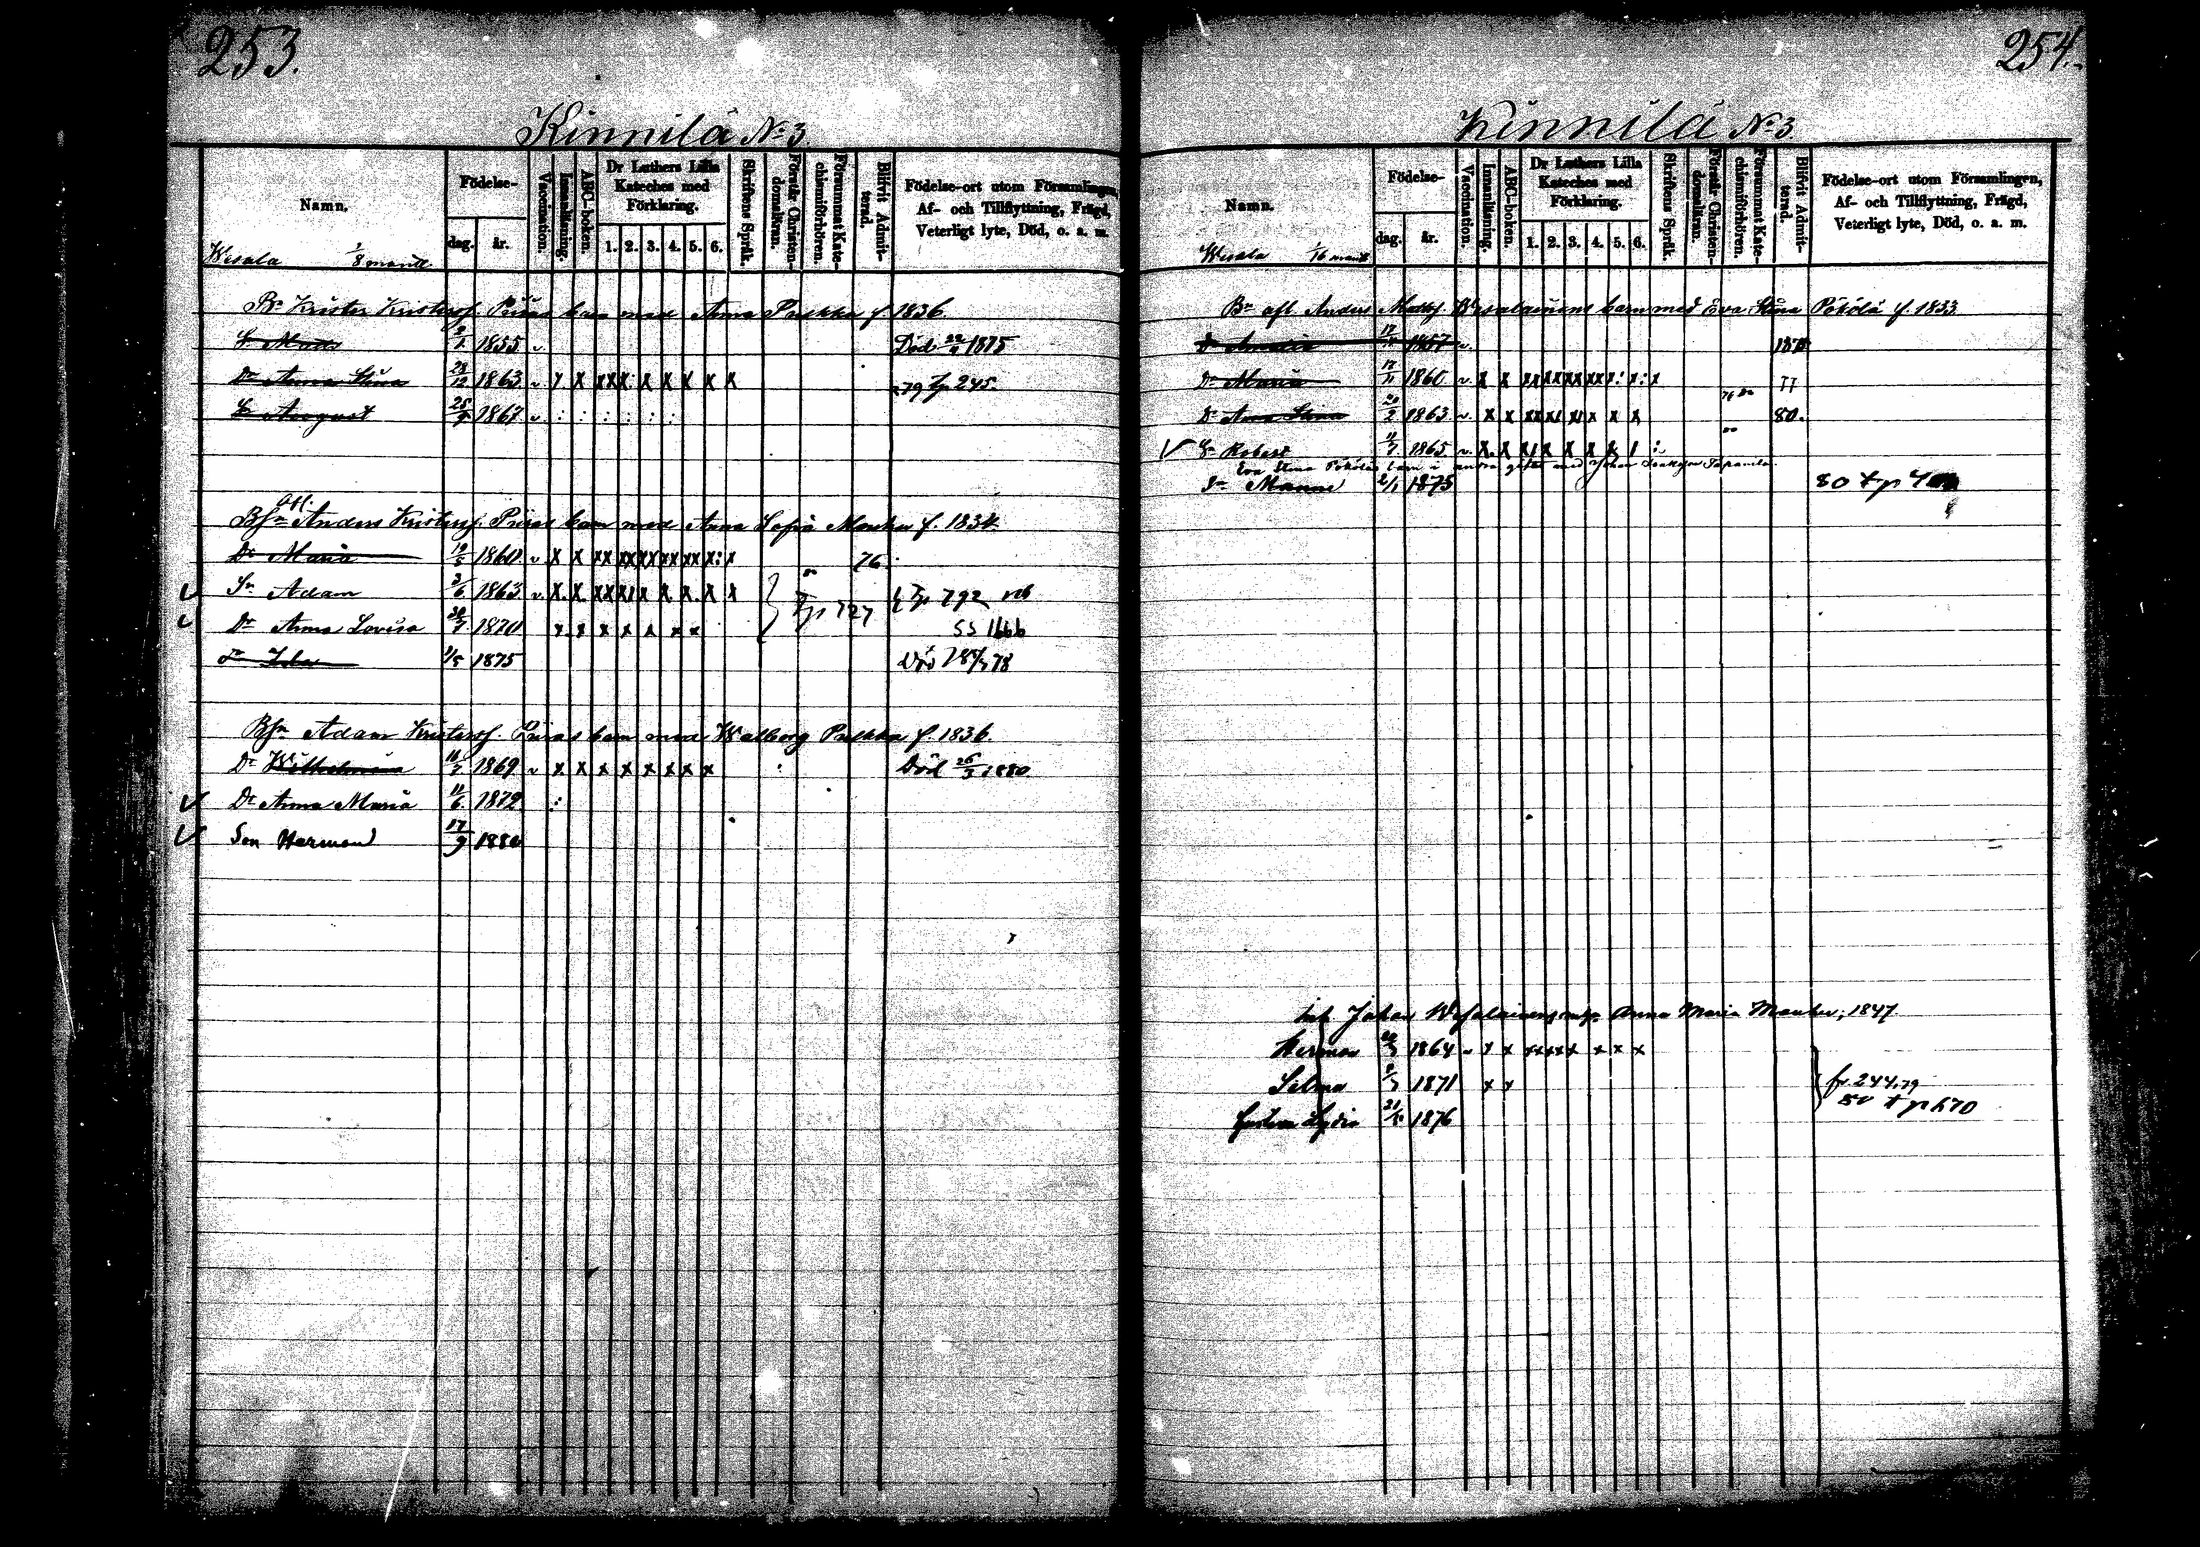 253.
Kinnilä No 3.
Namn.
Födelse-
dag.
år.
Vaccination.
Innanläsning.
ABC-boken.
Dr Luthers Lilla
Kateches med
Förklaring.
1. 2. 3. 4. 5. 6.
Skriftens Språk.
Förstår Christen-
domsläran.
Försummat Kate-
chismiförhören.
Blifvit Admit-
terad.
Födelse-ort utom Församlingen,
Af- och Tillflyttning, Frägd,
Veterligt lyte, Död, o. a. m.
Wesala 1/8 mantl
Bn Krister Kristersf. Puras barn med Anna Pukka f 1836.
Sn Mats 1855 v Död 1875
Dr Anna Stina 28/12 1863 v x x xxx x x x x x 79 Tp 245.
Sn August 1867 v : : : : : :
Afl.
Bsn Anders Kristersf. Puras barn med Anna Sofia f. 1834
Dr Maria 1860 v x x xx xx xx xx xx x: x 76.
Sn Adam 1863 v x. x. xx xx x x x. x x Tp 727 Tp 792
Dr Anna Lovisa 1870 x x x x x x x ss 1666
Ida 1875 78
Bsn Adam Kristersf. Puras barn med Walborg Pukka f. 1836.
Dr Wilhelmina 1869 v x x x x x x x x : Död 1880
Dr Anna Maria 11/6 1872 :
Son Herman 17/9 1880
254.
Kinnilä No 3
Namn.
Födelse-
dag.
år.
Vaccination.
Innanläsning.
ABC-boken.
Dr Luthers Lilla
Kateches med
Förklaring.
1. 2. 3. 4. 5. 6.
Skriftens Språk.
Förstår Christen-
domsläran.
Försummat Kate-
chismiförhören.
Blifvit Admit-
terad.
Födelse-ort utom Församlingen,
Af- och Tillflyttning, Frägd,
Veterligt lyte, Död, o. a. m.
Wesala 1/16 mantl
Bn afl Anders Mattsf. Wesalainens barn med Eva Stina Pökölä f. 1833.
Dr Amalia 1857 v.
Dr Maria 17/11 1860 v. x x xx xx xx xx x: x: x 77
Dr Anna Stina 20/2 1863 v. x x x x x 80.
Sn Robert 1865 v. x. x x x x
Eva Stina Pökölä barn i andra giftet med Johan
1875 80
Johan Wesalainens Anna Maria 1847
Herman 1864 v x x xxxxx x x x
Selma 1871 x x fr. 244.79
Lydia 1876 80 t p 670